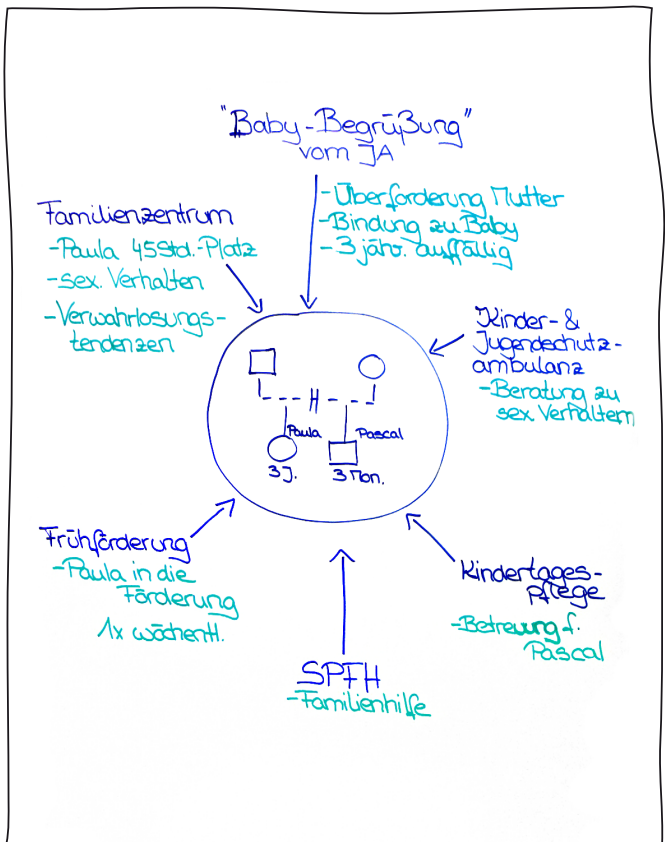 "Baby-Begrüßung"
vom JA
-Überforderung Mutter
-Bindung zu Baby
-3 jähr. auffällig
Familienzentrum
-Paula 45Std.-Platz
-sex. Verhalten
-Verwahrlosungs-
tendenzen
Kinder- &
Jugendschutz-
ambulanz
-Beratung zu
sex Verhaltem
Paula
Pascal
3J.
3 Mon.
Frühförderung
-Paula in die
Förderung
1x wöchentl.
Kindertages-
pflege
-Betreuung f.
Pascal
SPFH
-Familienhilfe